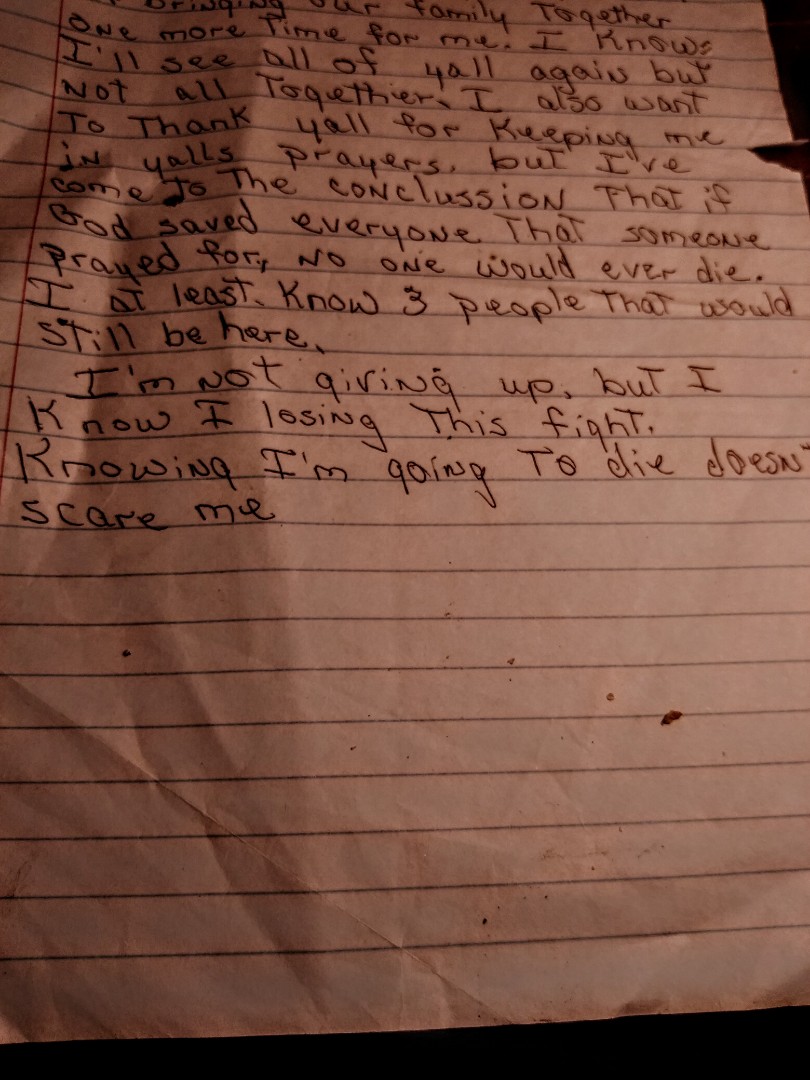 bringing our family Together
one more Time for me. I Know
I'll see all of yall again but
Not all Togethier. I also want
To Thank yall for Keeping me
in yalls prayers, but I've
come To The conclussion That if
God saved everyone That someone
prayed for, No one would ever die.
I at least Know 3 people That would
still be here.
I'm Not giving up, but I
Know I losing This fight.
Knowing I'm going To die doesn'
scare me